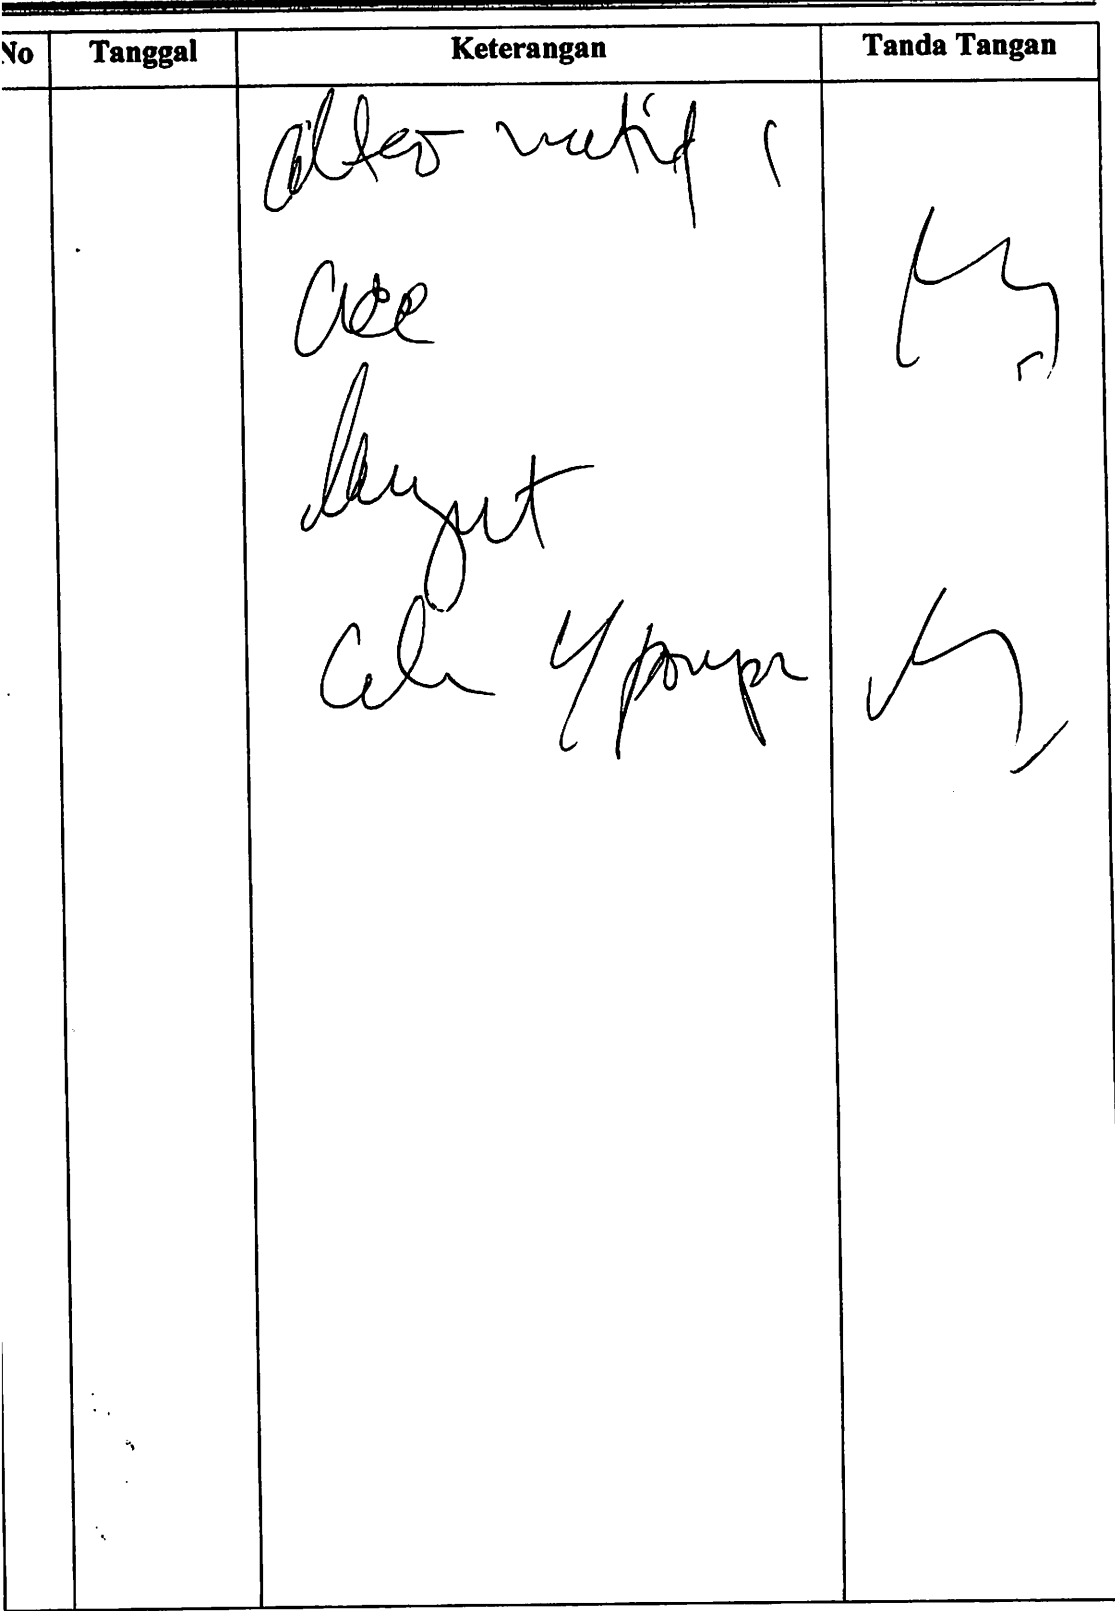 No Tanggal Keterangan Tanda Tangan
alternatif
acc
lanjut